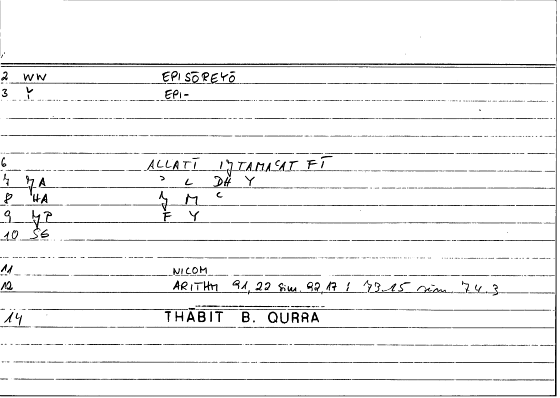 2 WW EPISŌREYŌ
3 Y EPI-
6 ALLATĪ IǦTAMAʿAT FĪ
7 ǦA ʾ L DH Y
8 HA Ǧ M ʿ
9 ǦP F Y
10 SG
11 NICOM
12 ARITHM 91,22 sim. 92,17 : 73.15 sim 74.3
14 THĀBIT B. QURRA